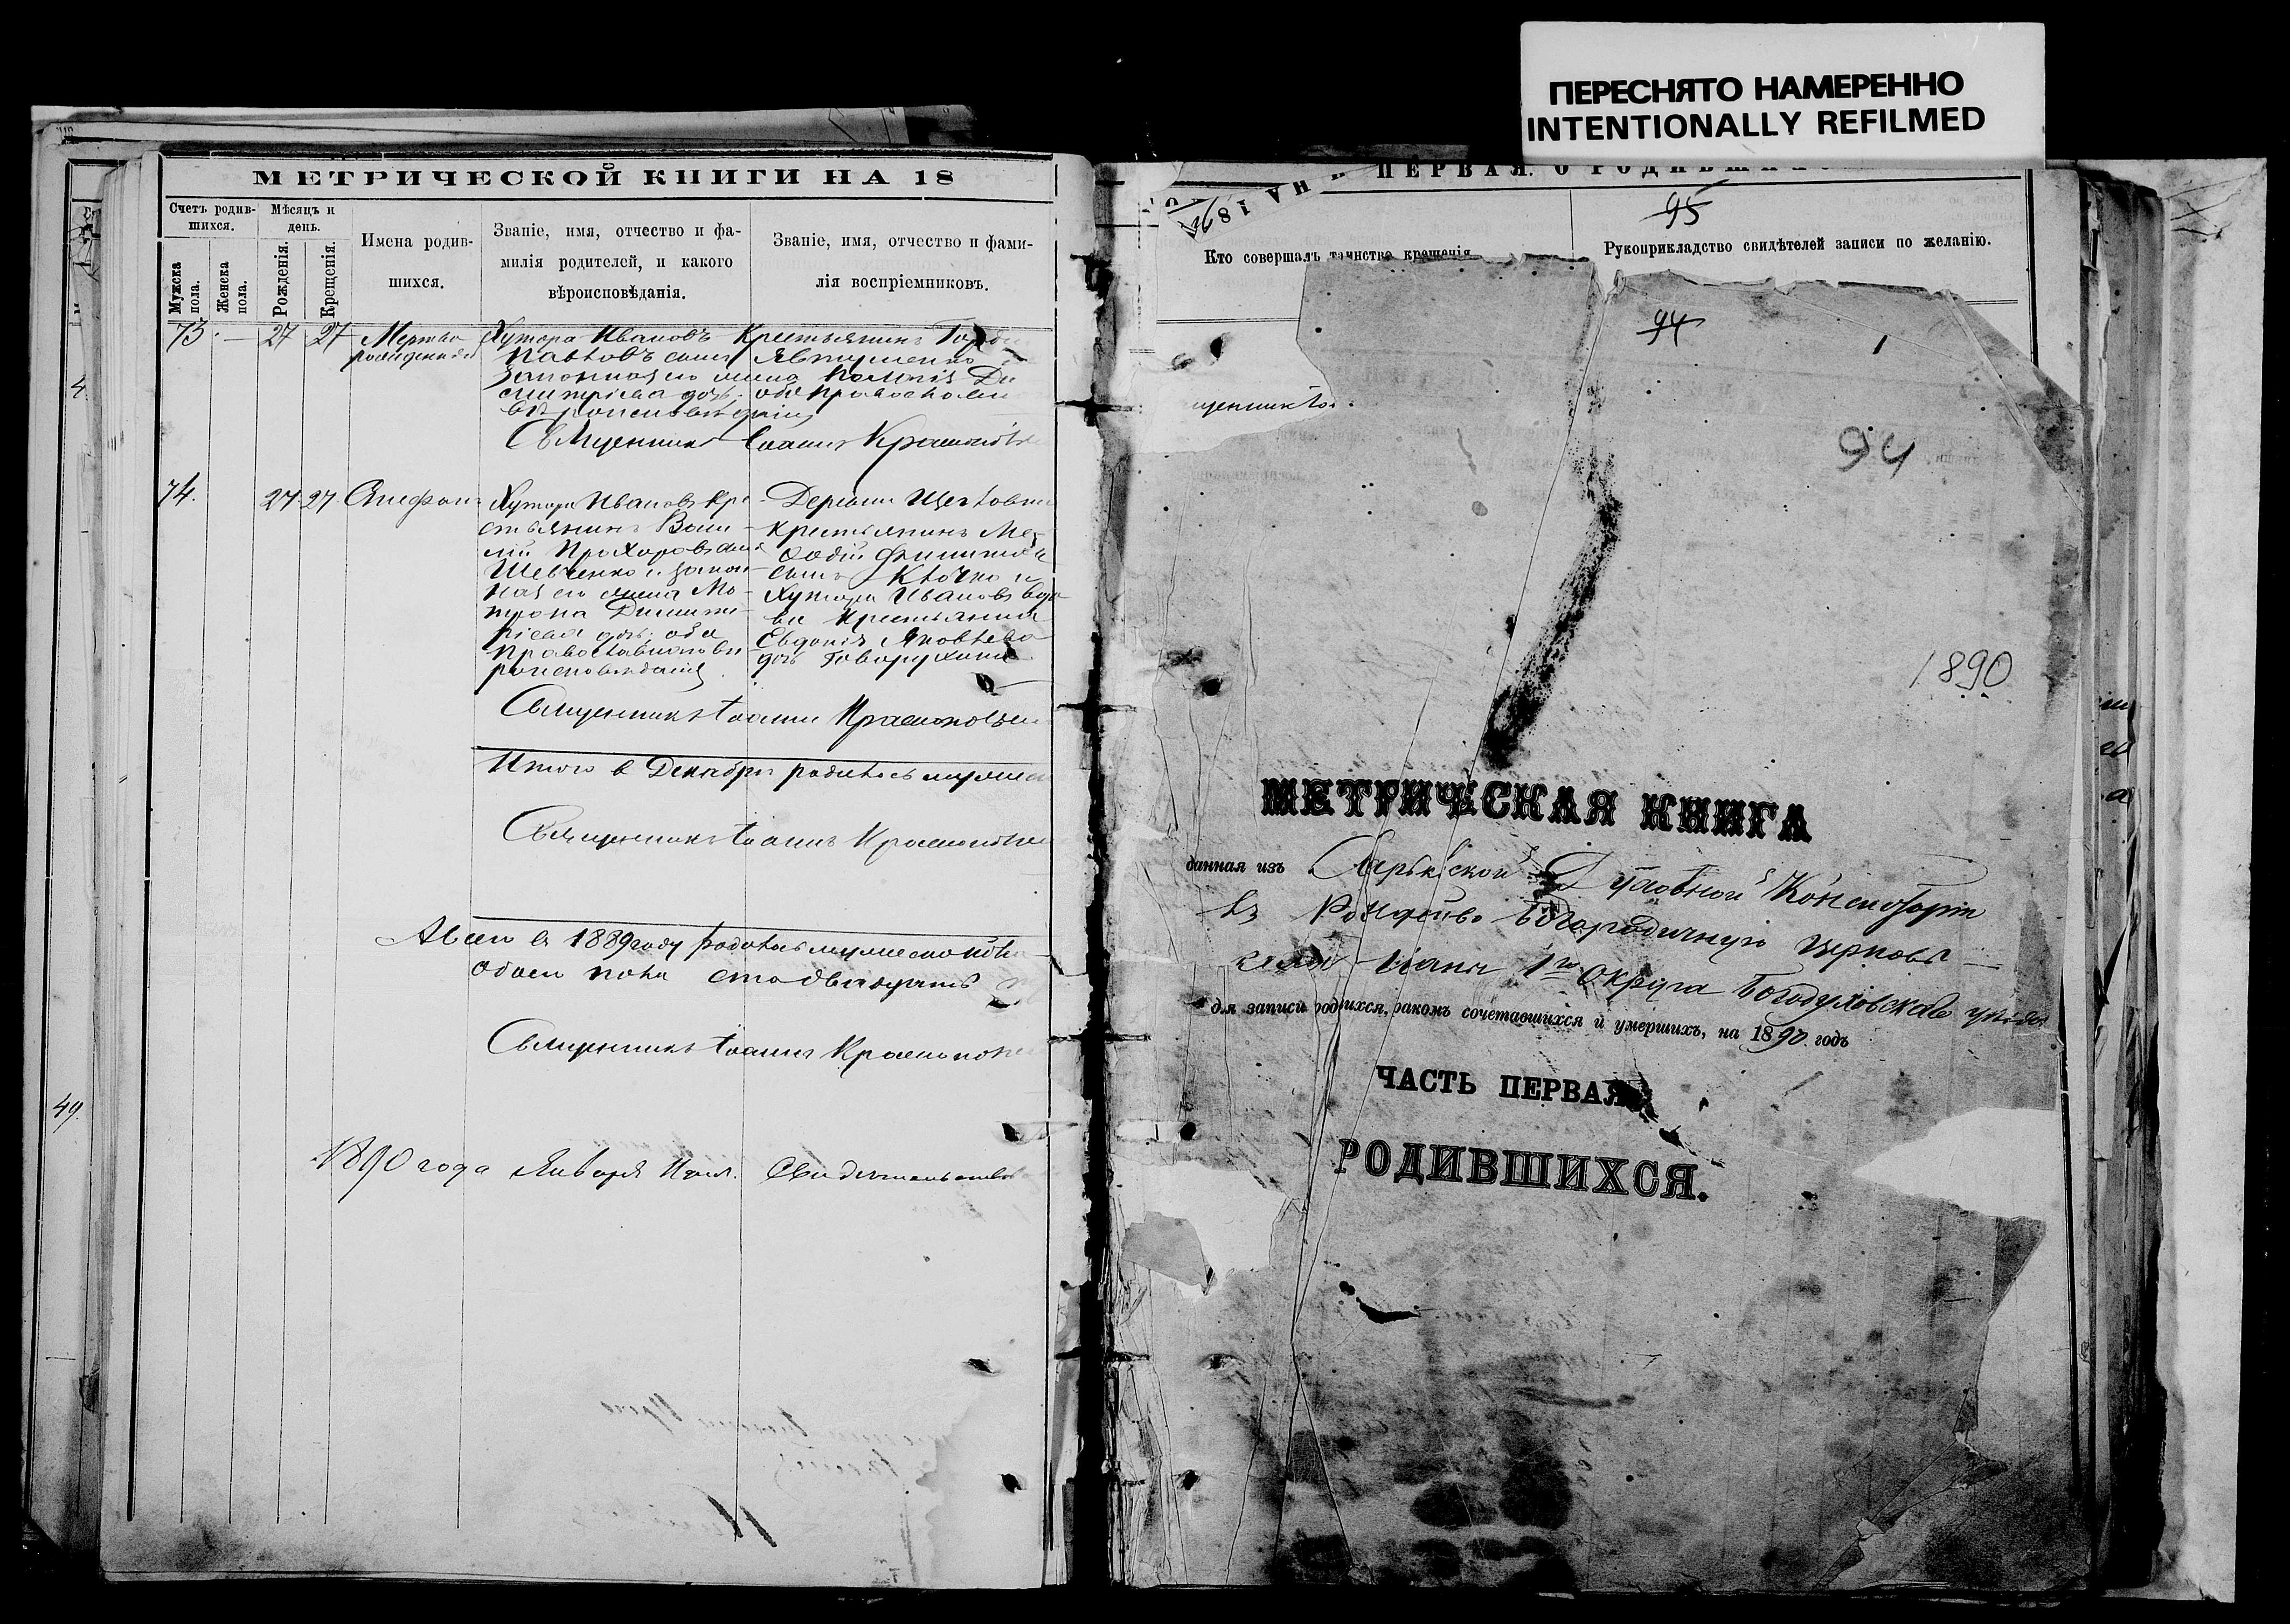 ПЕРЕСНЯТО НАМЕРЕННО
INTENTIONALLY REFILMED
МЕТРИЧЕСКОЙ КНИГИ НА 18
Счетъ родив-
шихся.
Мужска
пола.
Женска
пола.
Мѣсяцъ и
день.
Рожденія.
Крещенія.
Имена родив-
шихся.
Званіе, имя, отчество и фа-
милія родителей, и какого
вѣроисповѣданія.
Званіе, имя, отчество и фами-
лія воспріемниковъ.
73. — 27 27 Мертво
рожденный
Хутора Ивановъ Крестьянинъ
Павловъ сынъ Явтушенко
законная его жена Дми
тріева дочь, оба православн
вѣроисповѣданія
Священникъ Іоаннъ
74. 27 27
Хутора Ивановъ Кре
стьянинъ Васи
лій Прохоровъ сынъ
Шевченко и закон
ная его жена Ма
трона Димит
ріева дочь, оба
православнаго вѣ
роисповѣданія.
крестьянинъ Ме
ѳодій Филиппов
сынъ Клочко и
Хутора Ивановъ вдо
ва крестьянка
Евдокія Яковлева
дочь Говорухина
Священникъ Іоаннъ
Итого в Декабрѣ родилось мужеска
Священникъ Іоаннъ
А всего в 1889 году родилось мужеска
обоего пола сто двадцать
Священникъ Іоаннъ
1890 года Января дня. Свидѣтельство
49.
4
ПЕРВАЯ. О РОДИВШИХ
НА 18
95
Кто совершалъ таинство крещенія
Рукоприкладство свидѣтелей записи по желанію.
94
94
1890
МЕТРИЧЕСКАЯ КНИГА
данная изъ Харьковской Духовной Консисторіи
въ Рождество Богородичную церковь
1го Округа Богодуховскаго уѣзда
для записи родившихся, бракомъ сочетавшихся и умершихъ, на 1890 годъ
ЧАСТЬ ПЕРВАЯ
РОДИВШИХСЯ.